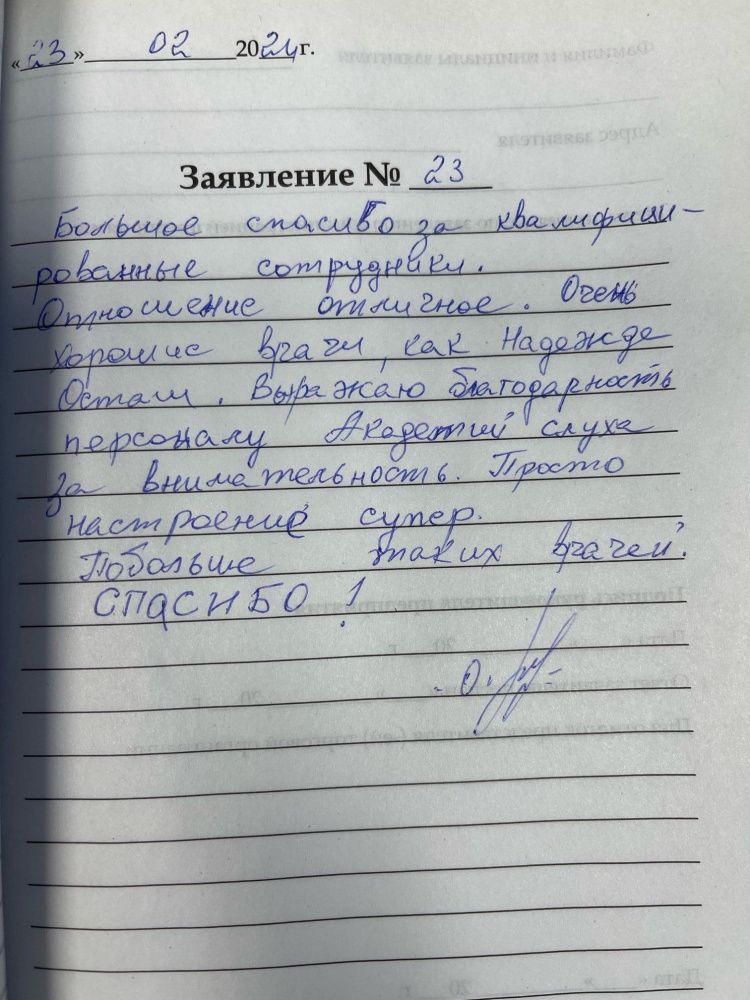 «23» 02 2024 г.
Заявление № 23
Большое спасибо за квалифици-
рованные сотрудники.
Отношение отличное. Очень
хорошие врачи, как Надежде
Осташ. Выражаю благодарность
персоналу Академий слуха
за внимательность. Просто
настроение супер.
Побольше таких врачей.
СПАСИБО!